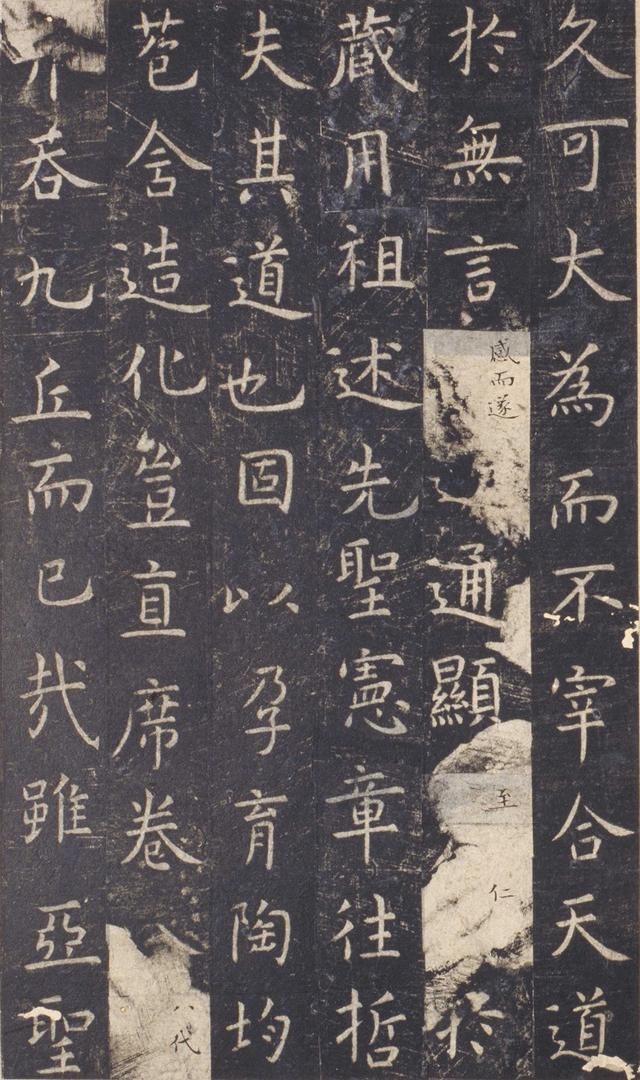 久可大為而不宰合天道
於無言感而遂通顯至仁於
蔵用祖述先聖憲章往哲
夫其道也固以孕育陶均
苞含造化豈直席卷八代
吞九丘而已哉雖亞聖